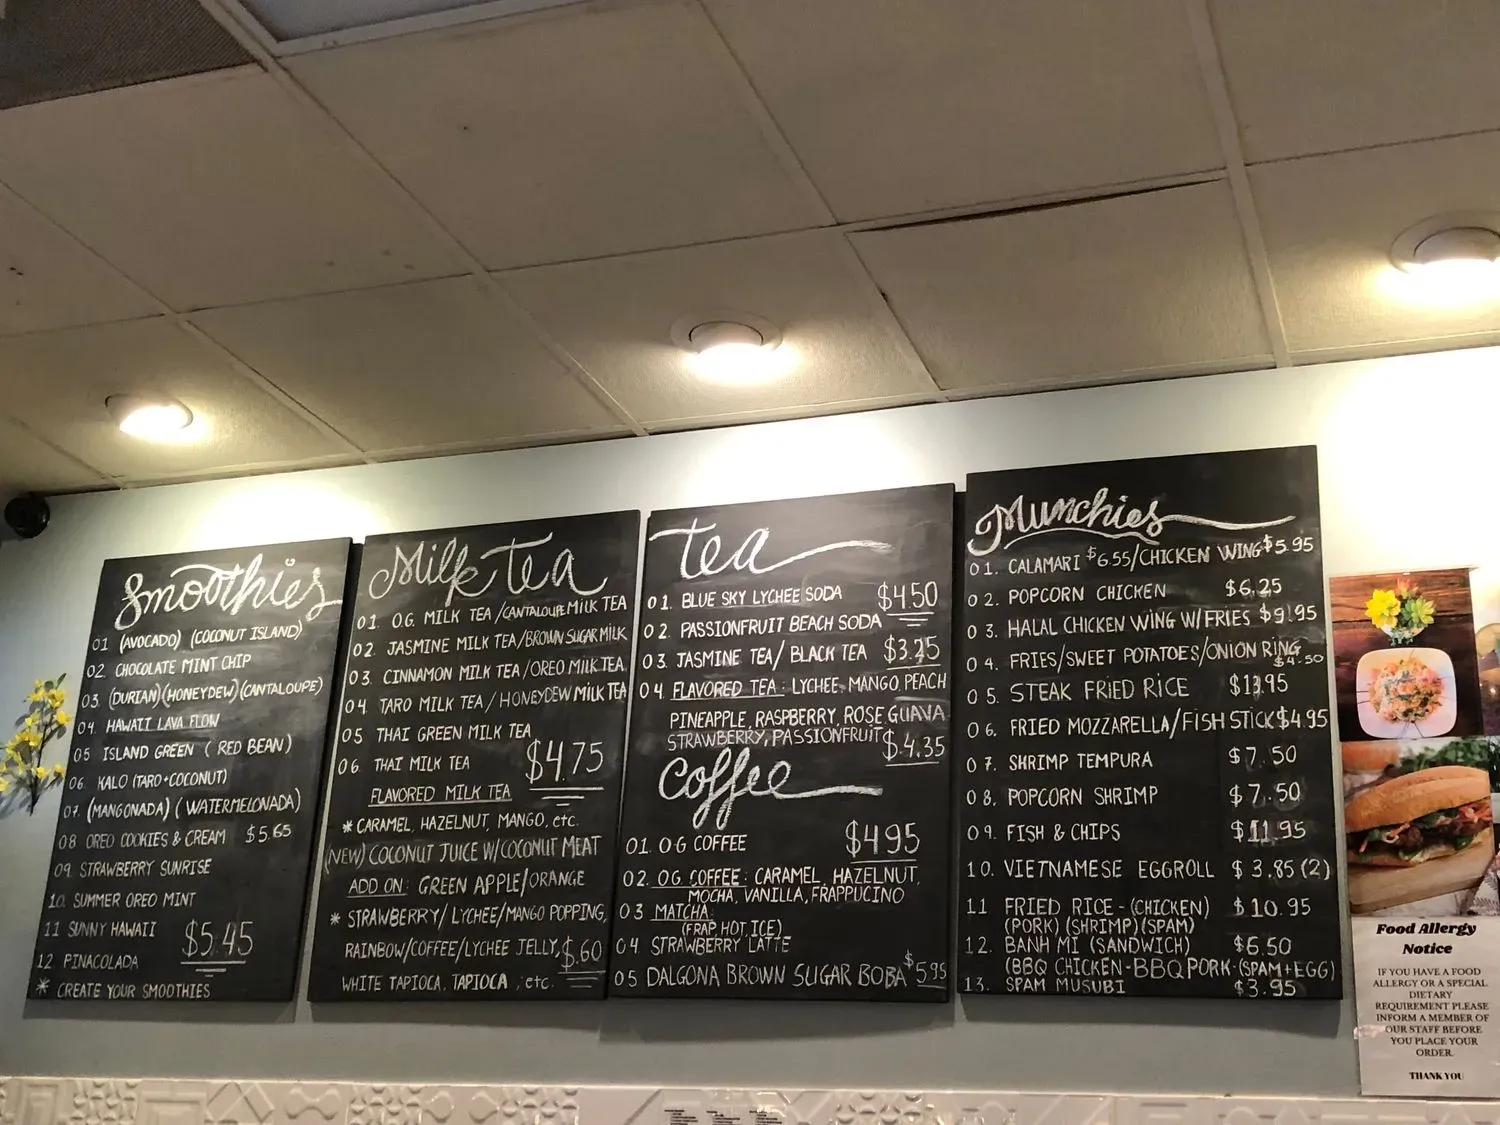 Smoothies
01 (AVOCADO) (COCONUT ISLAND)
02 CHOCOLATE MINT CHIP
03. (DURIAN)(HONEYDEW)(CANTALOUPE)
04 HAWAII LAVA FLOW
05 ISLAND GREEN (RED BEAN)
06 KALO (TARO+COCONUT)
07. (MANGONADA) (WATERMELONADA)
08 OREO COOKIES & CREAM $5.65
09. STRAWBERRY SUNRISE
10. SUMMER OREO MINT
11 SUNNY HAWAII
$5.45
12 PINACOLADA
* CREATE YOUR SMOOTHIES
Milk tea
01. O.G. MILK TEA/CANTALOUPE MILK TEA
02. JASMINE MILK TEA/BROWN SUGAR MILK
03. CINNAMON MILK TEA/OREO MILK TEA
04 TARO MILK TEA/HONEYDEW MILK TEA
05 THAI GREEN MILK TEA
06. THAI MILK TEA $4.75
FLAVORED MILK TEA
* CARAMEL, HAZELNUT, MANGO, etc.
(NEW) COCONUT JUICE W/COCONUT MEAT
ADD ON: GREEN APPLE/ORANGE
* STRAWBERRY/LYCHEE/MANGO POPPING,
RAINBOW/COFFEE/LYCHEE JELLY, $.60
WHITE TAPIOCA, TAPIOCA, etc.
tea
01. BLUE SKY LYCHEE SODA $4.50
02. PASSIONFRUIT BEACH SODA
03. JASMINE TEA/ BLACK TEA $3.25
04. FLAVORED TEA: LYCHEE, MANGO PEACH
PINEAPPLE, RASPBERRY, ROSE GUAVA
STRAWBERRY, PASSIONFRUIT $4.35
Coffee
01. O.G COFFEE $4.95
02. O.G. COFFEE: CARAMEL, HAZELNUT,
MOCHA, VANILLA, FRAPPUCINO
03 MATCHA:
(FRAP, HOT, ICE)
04 STRAWBERRY LATTE
05 DALGONA BROWN SUGAR BOBA $5.95
Munchies
01. CALAMARI $6.55/CHICKEN WING $5.95
02. POPCORN CHICKEN $6.25
03. HALAL CHICKEN WING W/FRIES $9.95
04. FRIES/SWEET POTATOES/ONION RING
$4.50
05. STEAK FRIED RICE $13.95
06. FRIED MOZZARELLA/FISH STICK $4.95
07. SHRIMP TEMPURA $7.50
08. POPCORN SHRIMP $7.50
09. FISH & CHIPS $11.95
10. VIETNAMESE EGGROLL $3.85(2)
11 FRIED RICE-(CHICKEN) $10.95
(PORK)(SHRIMP)(SPAM)
12. BANH MI (SANDWICH) $6.50
(BBQ CHICKEN-BBQ PORK-(SPAM+EGG)
13. SPAM MUSUBI $3.95
Food Allergy
Notice
IF YOU HAVE A FOOD
ALLERGY OR A SPECIAL
DIETARY
REQUIREMENT PLEASE
INFORM A MEMBER OF
OUR STAFF BEFORE
YOU PLACE YOUR
ORDER.
THANK YOU